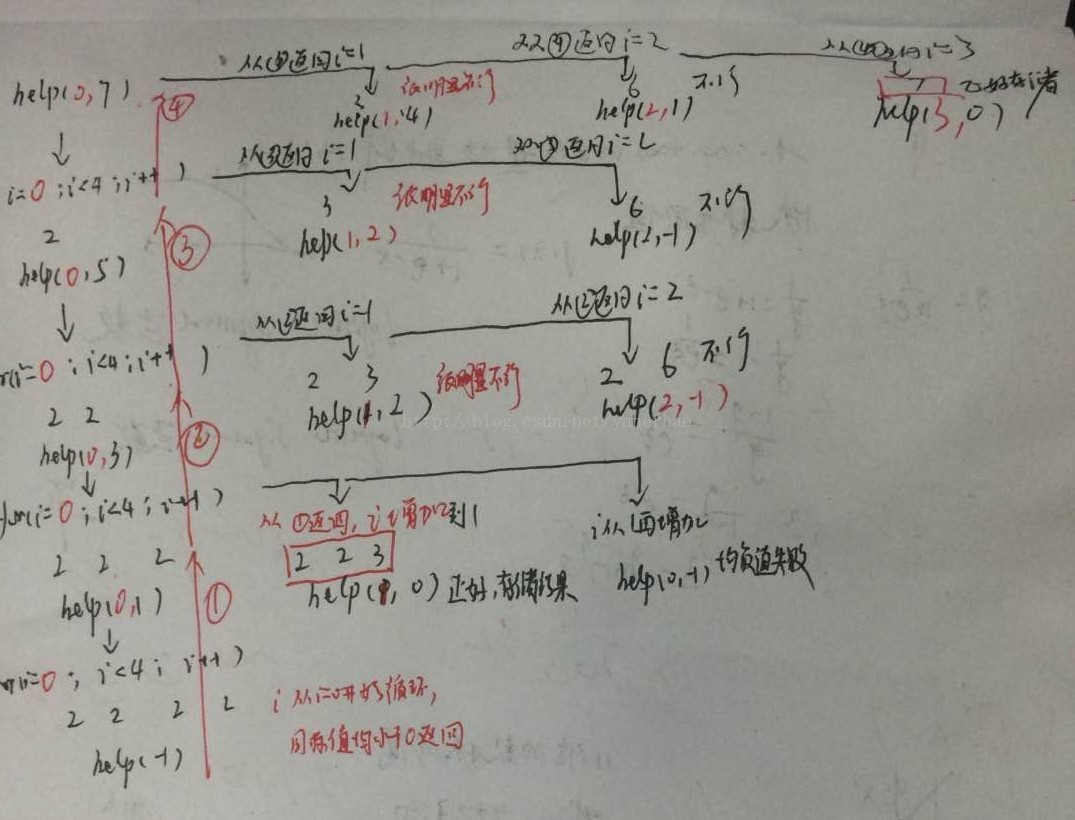 从④返回i=1
从④返回i=2
i=3
help(0,7)
④
3
help(1,4)
很明显不行
6
help(2,1)
不行
7
help(3,0)
i=0;i<4;i++)
从③返回i=1
返回i=2
2
help(0,5)
③
3
help(1,2)
很明显不行
6
help(2,-1)
不行
i=0;i<4;i++)
从②返回i=1
从②返回i=2
2 2
help(0,3)
②
2 3
help(1,2)
很明显不行
2 6 不行
help(2,-1)
http://blog.csdn.net/
for(i=0;i<4;i++)
从①返回,i增加到1
i从1再增加
2 2 2
help(0,1)
①
2 2 3
help(1,0)正好,存储结果
help(0,-1)均负值失败
i=0;i<4;i++)
2 2 2 2
help(-1)
i从i=0开始循环,
目标值均小于0返回